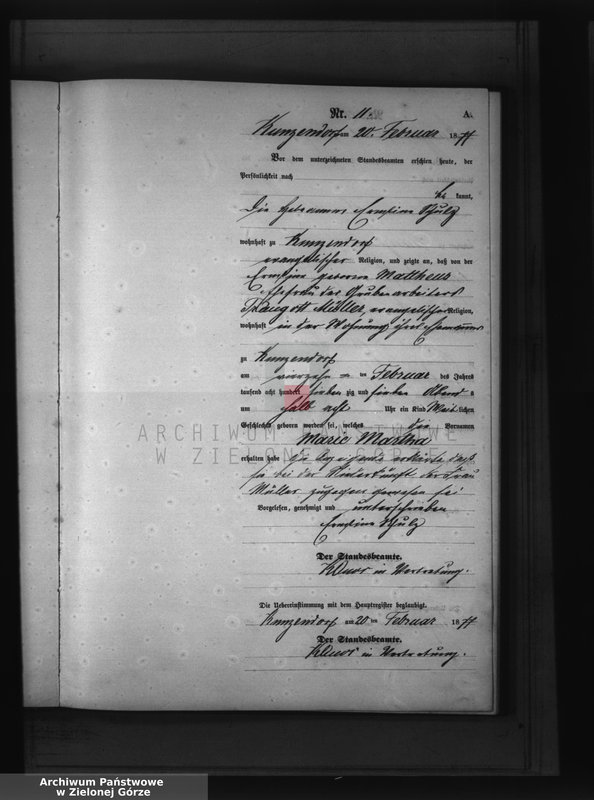 Nr. 11. A.
Kunzendorf am 20. Februar 1877
Vor dem unterzeichneten Standesbeamten erschien heute, der
Persönlichkeit nach
be kannt,
die Hebamme Ernstine Schulz
wohnhaft zu Kunzendorf
evangelischer Religion, und zeigte an, daß von der
Ernstine geborene Mattheus
Ehefrau des Grubenarbeiters
Traugott Müller, evangelischer Religion,
wohnhaft in der Wohnung ihres Ehemannes
zu Kunzendorf
am vierzehn ten Februar des Jahres
tausend acht hundert sieben zig und sieben Abend s
um halb acht Uhr ein Kind Weib lichen
Geschlechts geboren worden sei, welches die Vornamen
Marie Martha
erhalten habe die Anzeigende erklärte daß
sie bei der Niederkunft der Frau
Müller zugegen gewesen sei
Vorgelesen, genehmigt und unterschrieben
Ernstine Schulz
Der Standesbeamte.
in Vertretung.
Die Uebereinstimmung mit dem Hauptregister beglaubigt.
Kunzendorf am 20 ten Februar 1877
Der Standesbeamte.
in Vertretung.
ARCHIWUM PAŃSTWOWE
W ZIELONEJ GÓRZE
Archiwum Państwowe
w Zielonej Górze